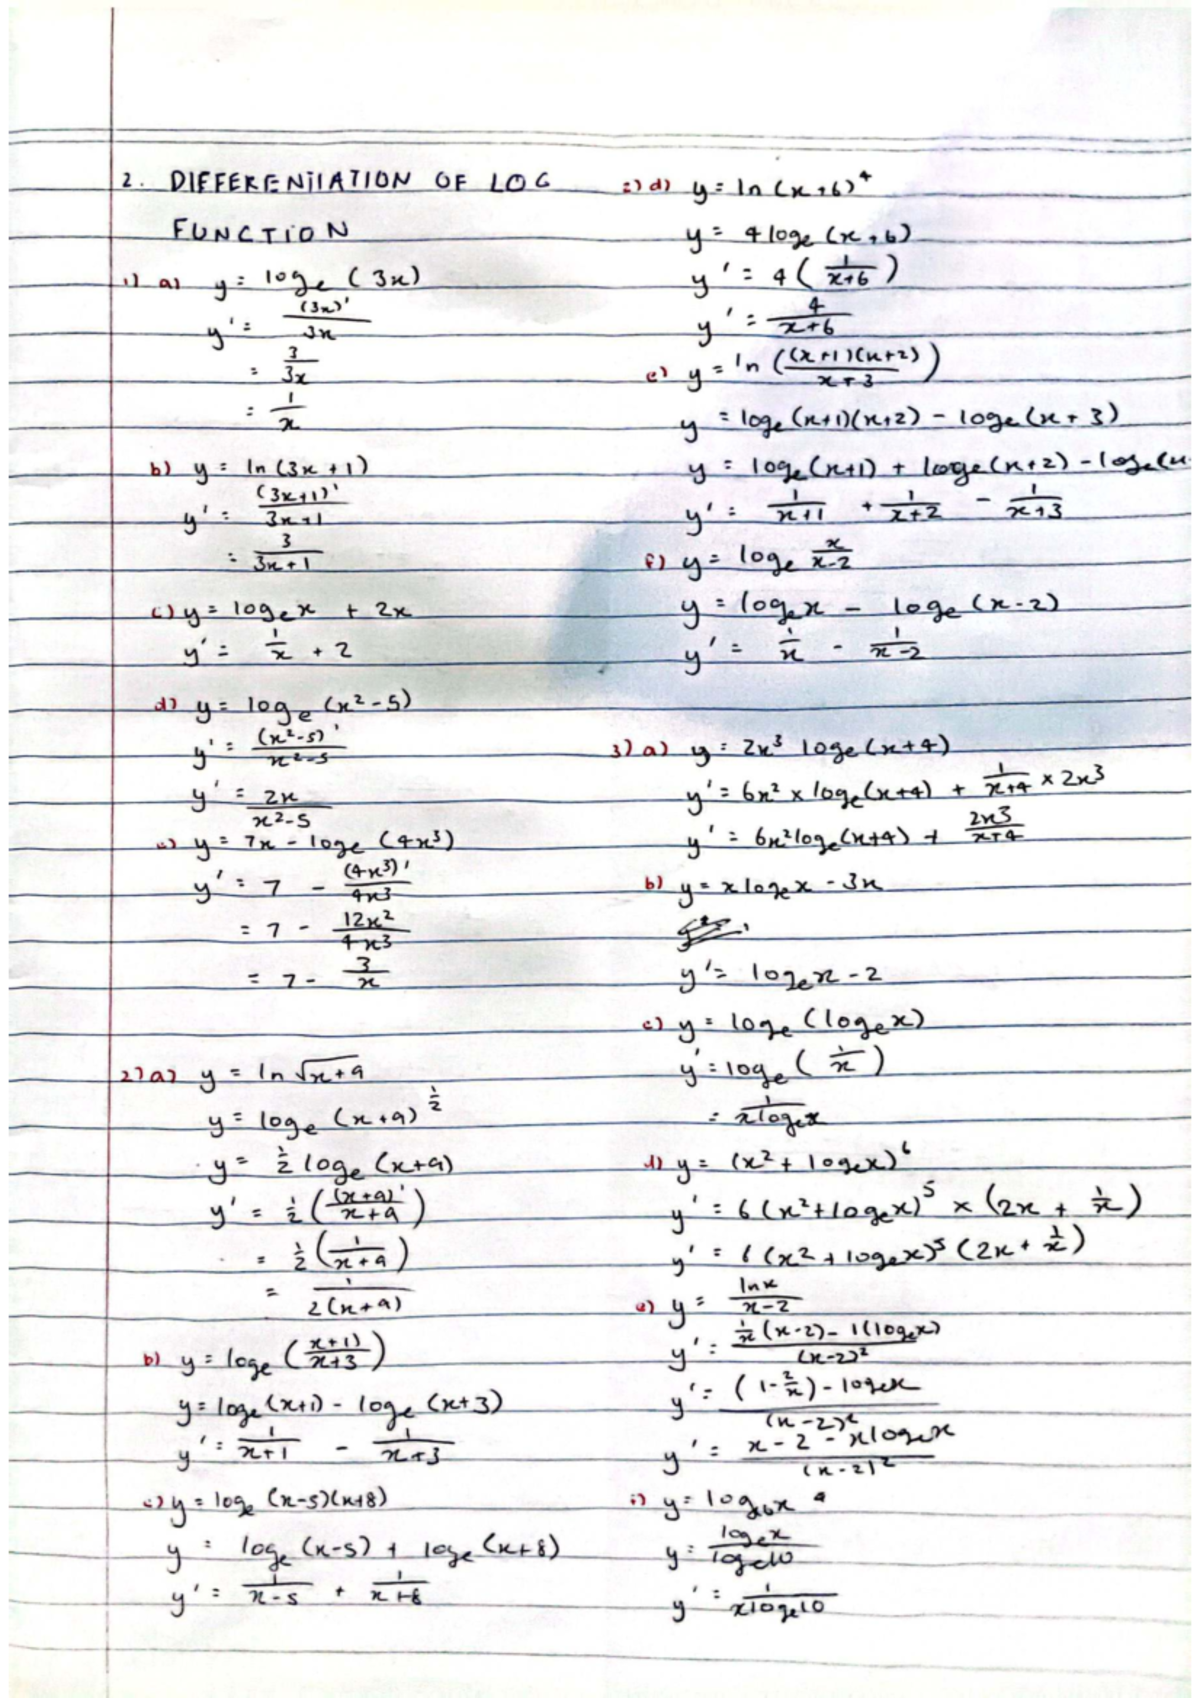 2. DIFFERENTIATION OF LOG
FUNCTION
1) a) y = logₑ (3x)
y' = (3x)' / 3x
= 3 / 3x
= 1 / x
b) y = ln (3x + 1)
y' = (3x+1)' / 3x+1
= 3 / 3x+1
c) y = logₑx + 2x
y' = 1/x + 2
d) y = logₑ (x² - 5)
y' = (x²-5)' / x²-5
y' = 2x / x²-5
e) y = 7x - logₑ (4x³)
y' = 7 - (4x³)' / 4x³
= 7 - 12x² / 4x³
= 7 - 3/x
2) a) y = ln √x+9
y = logₑ (x+9)^½
y = ½ logₑ (x+9)
y' = ½ ( (x+9)' / x+9 )
= ½ ( 1 / x+9 )
= 1 / 2(x+9)
b) y = logₑ ( x+1) / x+3 )
y = logₑ(x+1) - logₑ (x+3)
y' = 1 / x+1 - 1 / x+3
c) y = logₑ (x-5)(x+8)
y = logₑ (x-5) + logₑ (x+8)
y' = 1 / x-5 + 1 / x+8
2) d) y = ln (x+6)⁴
y = 4 logₑ (x+6)
y' = 4 ( 1 / x+6 )
y' = 4 / x+6
e) y = ln ( (x+1)(x+2) / x+3 )
y = logₑ(x+1)(x+2) - logₑ(x+3)
y = logₑ(x+1) + logₑ(x+2) - logₑ(x
y' = 1 / x+1 + 1 / x+2 - 1 / x+3
f) y = logₑ x / x-2
y = logₑx - logₑ (x-2)
y' = 1/x - 1 / x-2
3) a) y = 2x³ logₑ(x+4)
y' = 6x² × logₑ(x+4) + 1 / x+4 × 2x³
y' = 6x²logₑ(x+4) + 2x³ / x+4
b) y = x logₑx - 3x
y' = logₑx - 2
c) y = logₑ (logₑx)
y' = logₑ ( 1/x )
= 1 / xlogₑx
d) y = (x² + logₑx)⁶
y' = 6 (x² + logₑx)⁵ × (2x + 1/x)
y' = 6 (x² + logₑx)⁵ (2x + 1/x)
e) y = lnx / x-2
y' = 1/x (x-2) - 1(logₑx) / (x-2)²
y' = (1 - 2/x) - logₑx / (x-2)²
y' = x - 2 - xlogₑx / (x-2)²
y = logₑx / logₑ10
y' = 1 / xlogₑ10